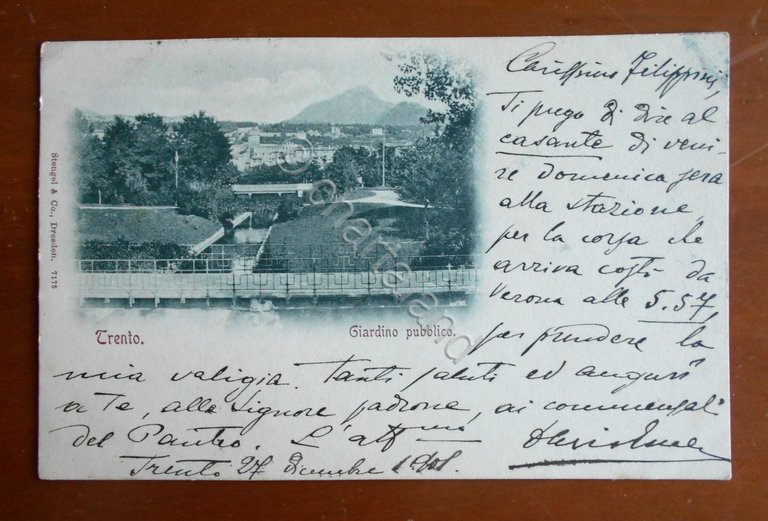 Carissimo Filippini,
Ti prego di dire al
casante di veni-
re domenica sera
alla stazione
per la corsa che
arriva costì da
Verona alle 5.57,
per prendere la
mia valigia. Tanti saluti ed auguri
a Te, alle Signore padrone, ai commensali
del Panteo. L'aff mo
Trento 27 dicembre 1901.
Trento.
Giardino pubblico.
Stengel & Co., Dresden. 7175
©